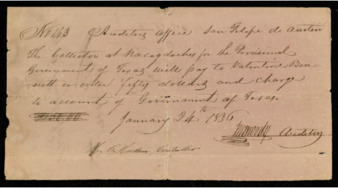 Auditors Office San Felipe de Austin
The Collector at Nacogdoches for the Provisional
Government of Texas will pay to Valentine Ben
nett or order fifty dollars and charge
to account of Government of Texas.
January 24th 1836
Auditor